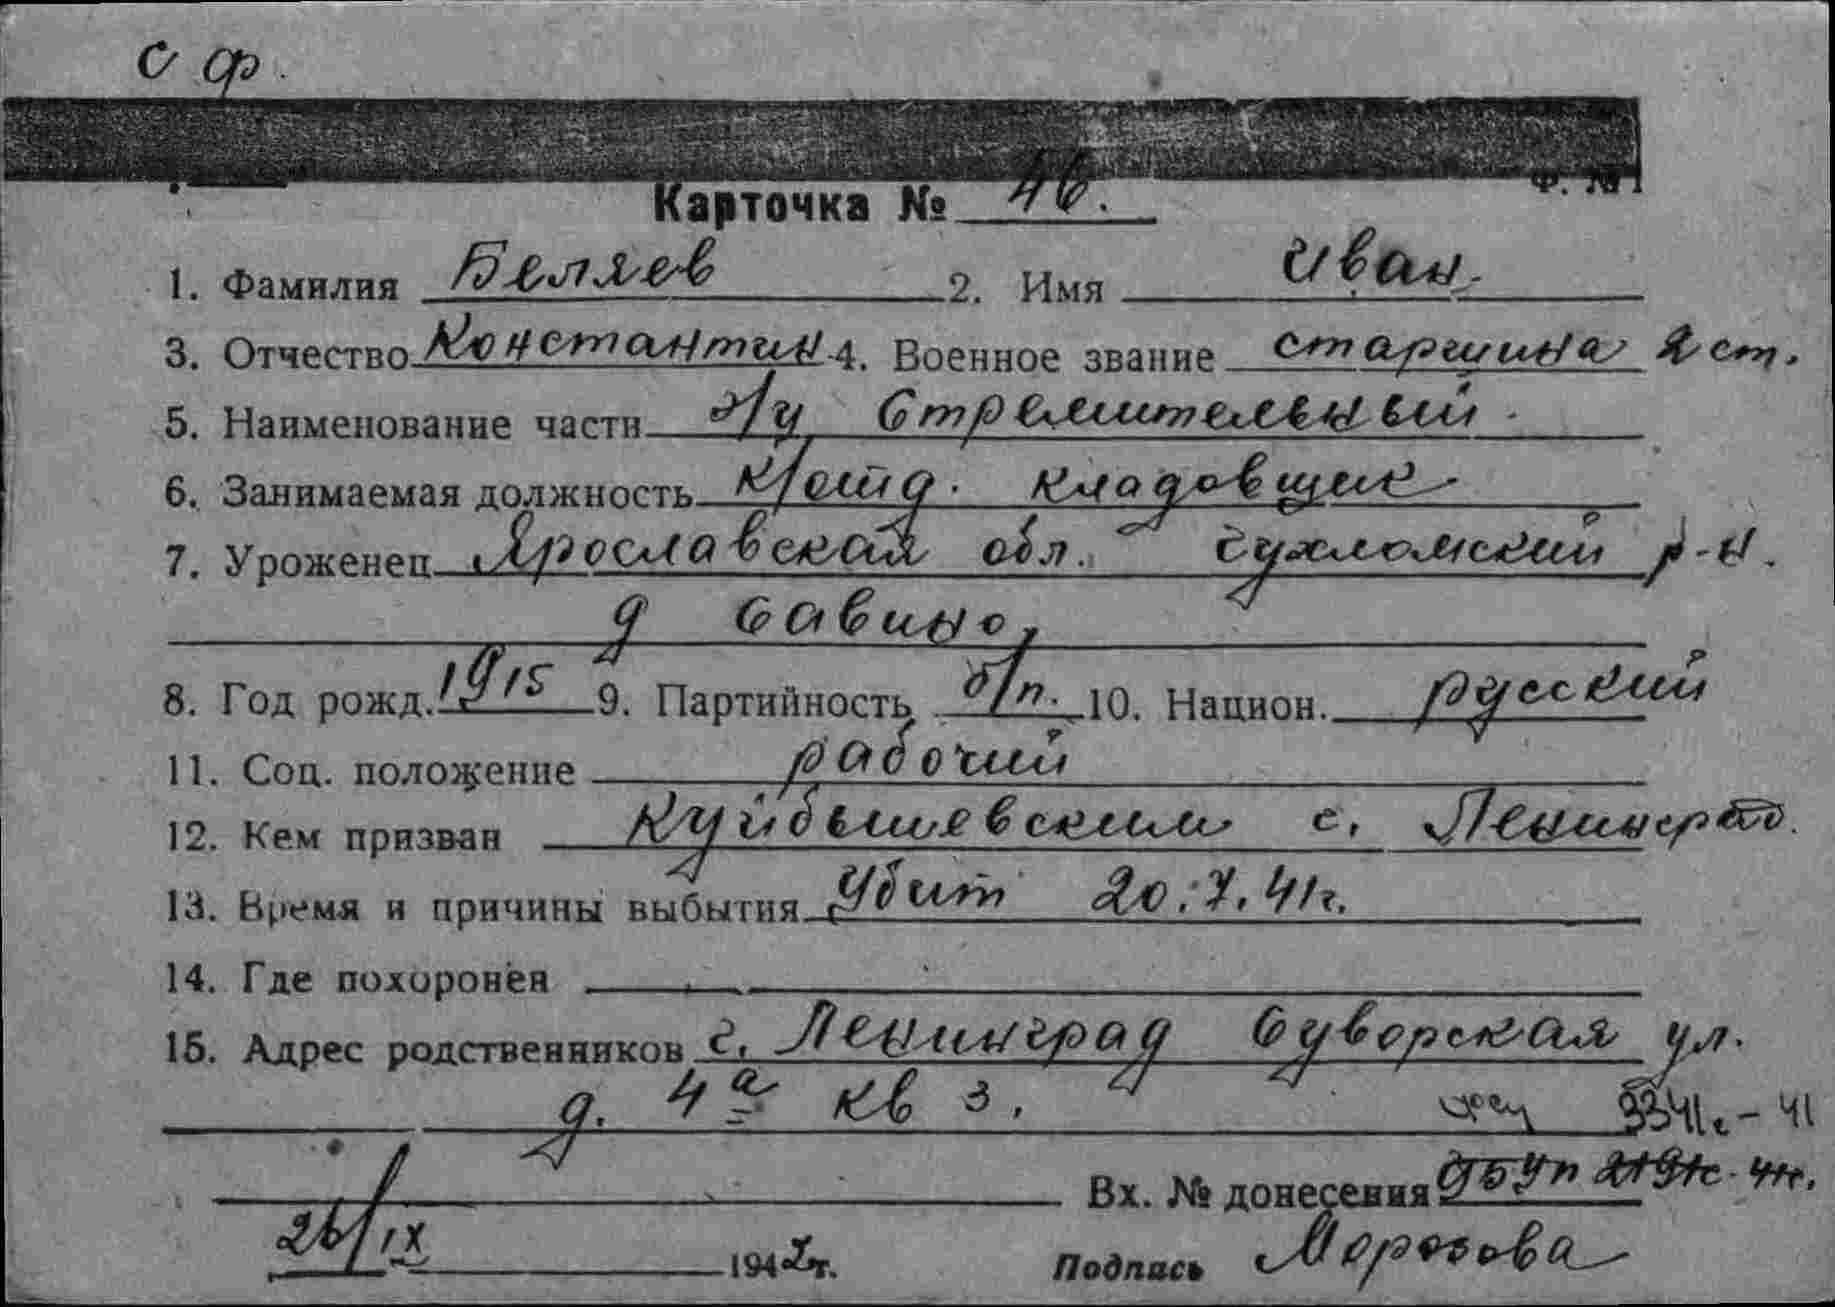 с ф.
Ф. № 1
Карточка № 46.
1. Фамилия Беляев 2. Имя Иван.
3. Отчество Константин 4. Военное звание старшина 2 ст.
5. Наименование части э/м Стремительный
6. Занимаемая должность кладовщик
7. Уроженец Ярославская обл. Чухломский р-н.
д Савино,
8. Год рожд. 1915 9. Партийность б/п. 10. Национ. русский
11. Соц. положение рабочий
12. Кем призван Куйбышевским г. Ленинград.
13. Время и причины выбытия Убит 20.7.41г.
14. Где похоронен
15. Адрес родственников г. Ленинград Суворская ул.
д. 4а кв 3.
Вх. № донесения
26/IX 194 г. Подпись Морозова